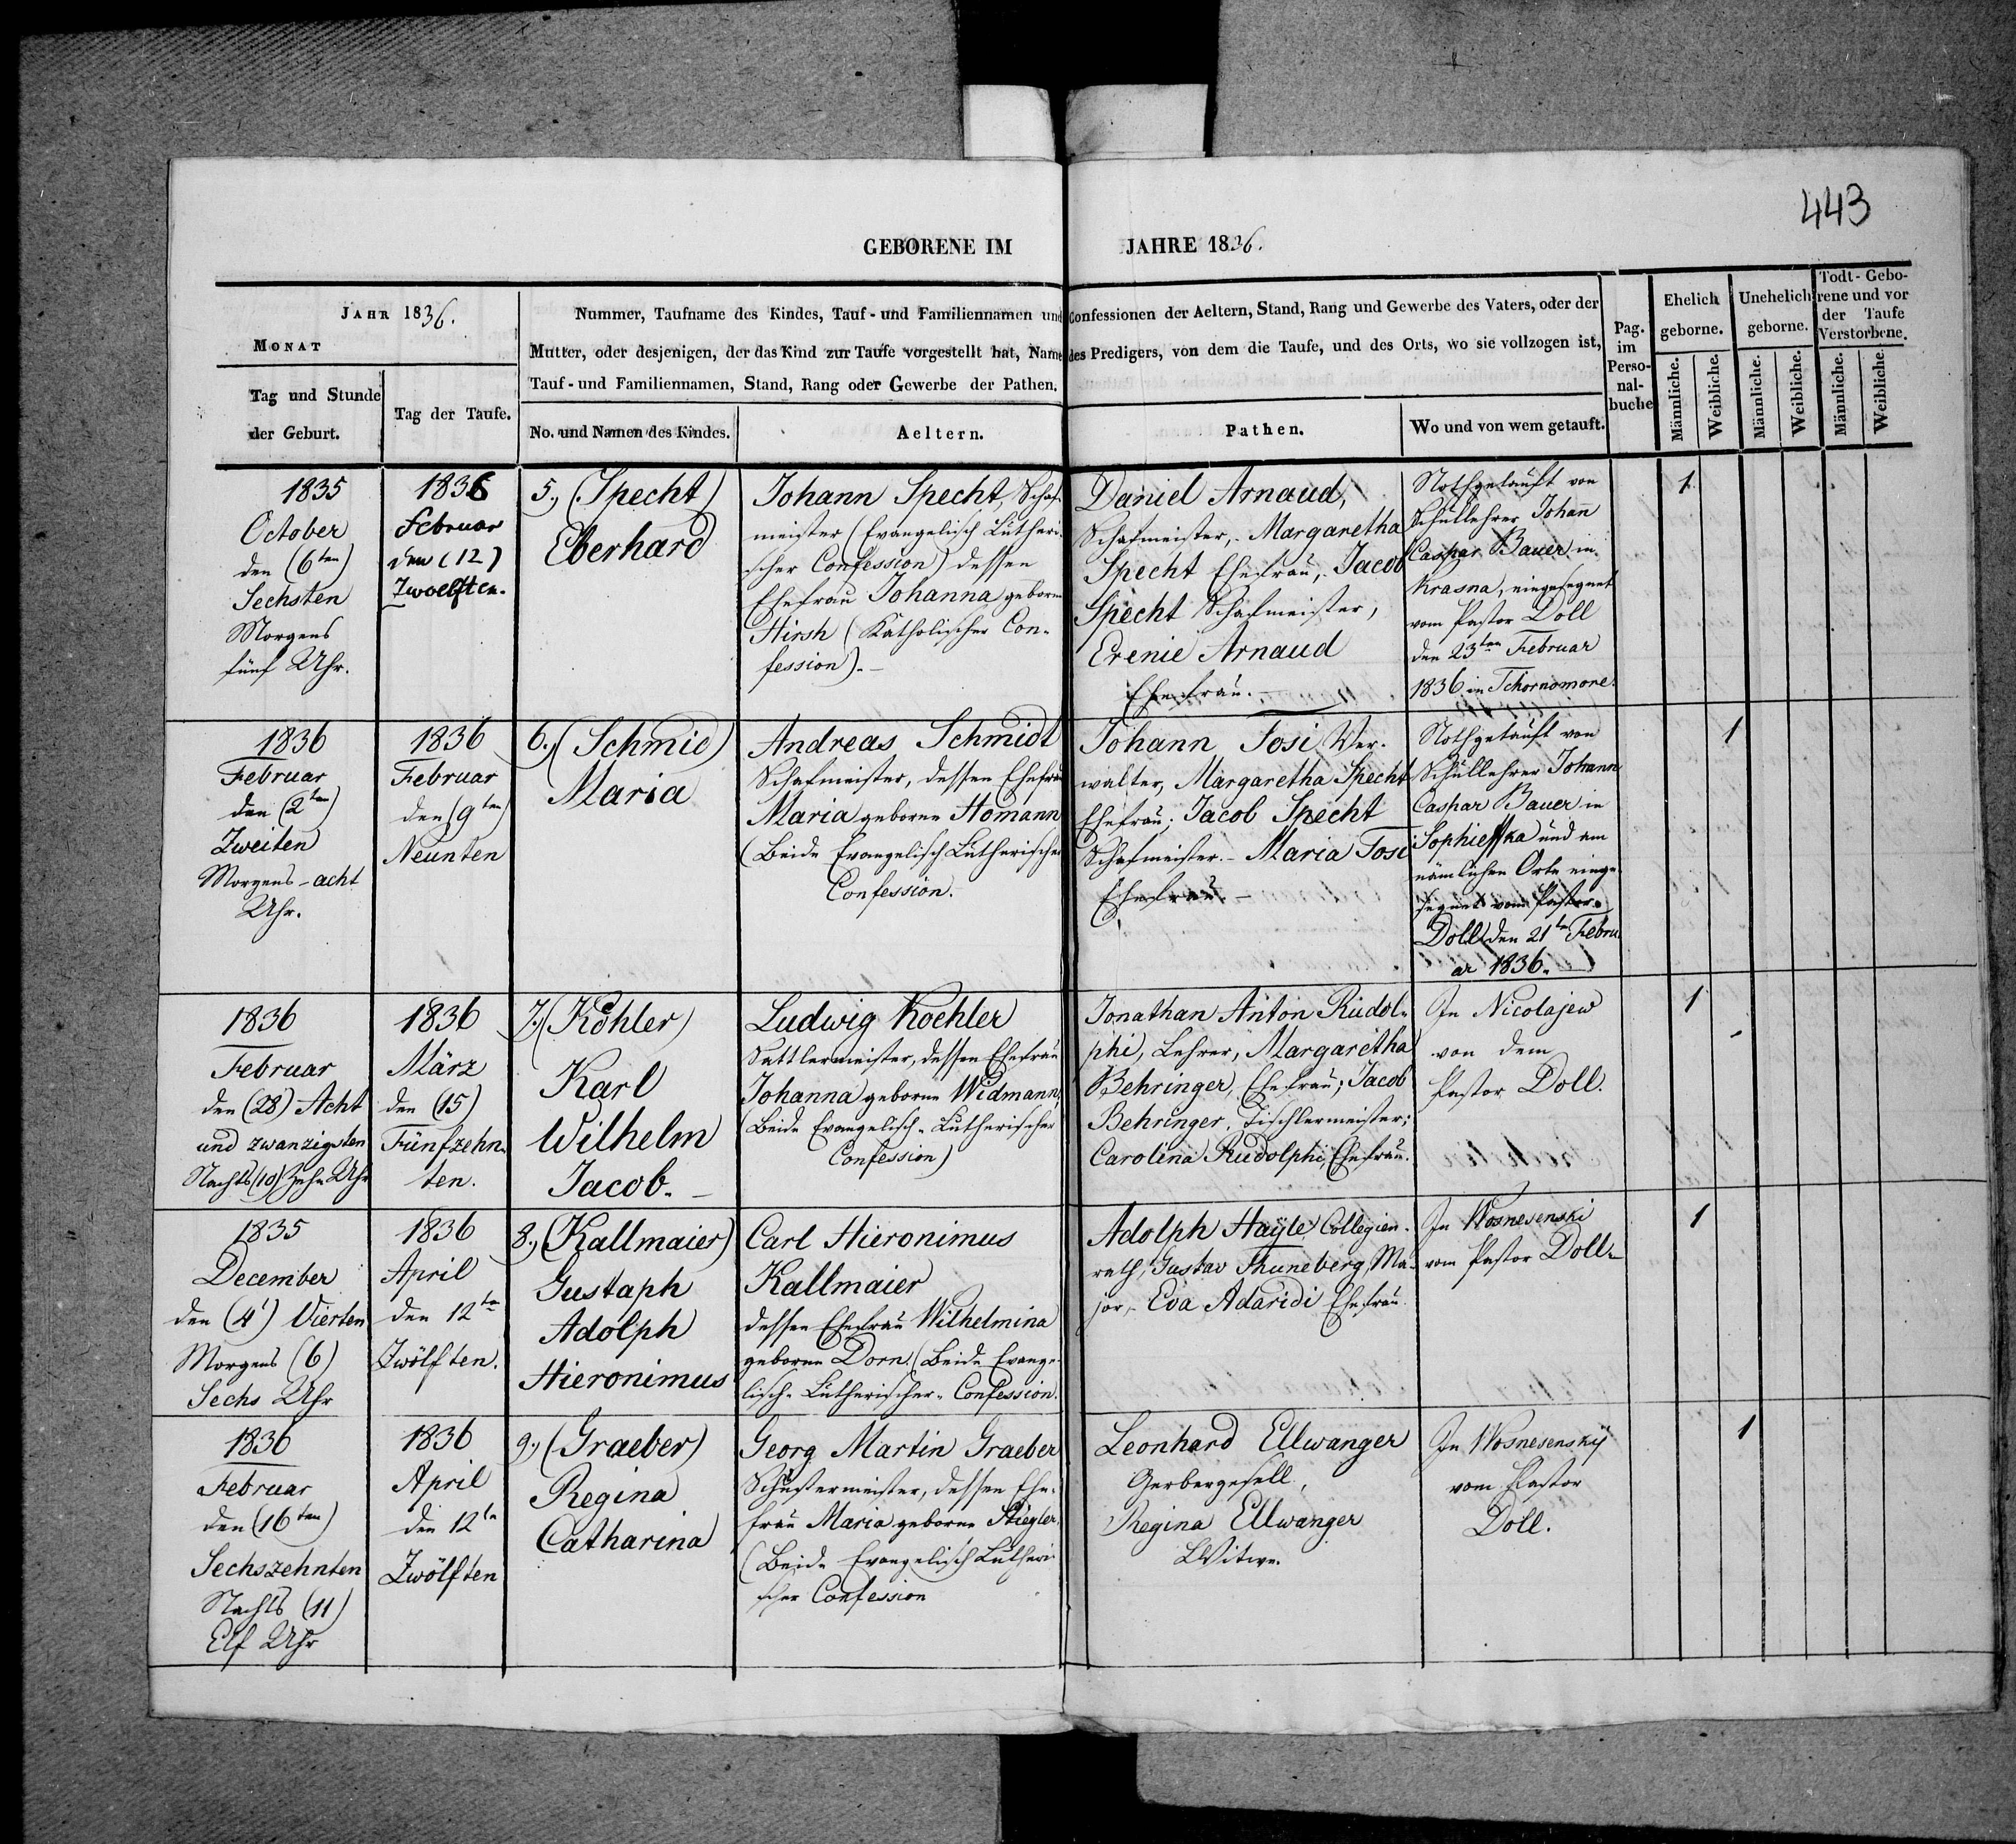 443
GEBORENE IM JAHRE 1836.
JAHR 1836.
MONAT
Tag und Stunde
der Geburt.
Tag der Taufe.
Nummer, Taufname des Kindes, Tauf- und Familiennamen und Confessionen der Aeltern, Stand, Rang und Gewerbe des Vaters, oder der
Mutter, oder desjenigen, der das Kind zur Taufe vorgestellt hat, Name des Predigers, von dem die Taufe, und des Orts, wo sie vollzogen ist,
Tauf- und Familiennamen, Stand, Rang oder Gewerbe der Pathen.
No. und Namen des Kindes.
Aeltern.
Pathen.
Wo und von wem getauft.
Pag.
im
Perso-
nal-
buche
Ehelich
geborne.
Männliche.
Weibliche.
Unehelich
geborne.
Männliche.
Weibliche.
Todt-Gebo-
rene und vor
der Taufe
Verstorbene.
Männliche.
Weibliche.
1835
October
den (6ten)
Sechsten
Morgens
fünf Uhr.
1836
Februar
den (12)
Zwoelften.
5., (Specht)
Eberhard
Johann Specht, Schaf-
meister (Evangelisch Lutheri-
scher Confession) dessen
Ehefrau Johanna geborne
Hirsh (Katholischer Con-
fession).-
Daniel Arnaud,
Schafmeister,- Margaretha
Specht Ehefrau,- Jacob
Specht Schafmeister,
Erenie Arnaud
Ehefrau.-
Nothgetauft von
Schullehrer Johann
Caspar Bauer in
Krasna, eingesegnet
vom Pastor Doll
den 23ten Februar
1836 in Tchornomore.
1
1836
Februar
den (2ten)
Zweiten
Morgens - acht
Uhr.
1836
Februar
den (9ten)
Neunten
6., (Schmid)
Maria
Andreas Schmidt
Schafmeister, dessen Ehefrau
Maria geborne Homann
(Beide Evangelisch Lutherischer
Confession.
Johann Tosi, Ver-
walter, Margaretha Specht
Ehefrau; Jacob Specht
Schafmeister.- Maria Tosi
Ehefrau.-
Nothgetauft von
Schullehrer Johann
Caspar Bauer in
Sophieffka und am
nämlichen Orte einge-
segnet vom Pastor
Doll den 21ten Febru-
ar 1836.
1
1836
Februar
den (28) Acht
und zwanzigsten
Nachts (10) Zehn Uhr
1836
März
den (15)
Fünfzehn-
ten.
7., (Köhler)
Karl
Wilhelm
Jacob.-
Ludwig Koehler
Sattlermeister, dessen Ehefrau
Johanna geborne Widmann,
(Beide Evangelisch-Lutherischer
Confession)
Jonathan Anton Rudol-
phi, Lehrer, Margaretha
Behringer, Ehefrau; Jacob
Behringer, Tischlermeister;
Carolina Rudolphi, Ehefrau.
In Nicolajew
von dem
Pastor Doll.
1
1835
December
den (4t) Vierten
Morgens (6)
Sechs Uhr
1836
April
den 12te
Zwölften.
8., (Kallmaier)
Gustaph
Adolph
Hieronimus
Carl Hieronimus
Kallmaier
dessen Ehefrau Wilhelmina
geborne Dorn. (Beide Evange-
lisch-Lutherischer-Confession.
Adolph Hayle Collegien-
rath, Gustav Thuneberg, Ma-
jor,- Eva Adaridi Ehefrau.
In Wosnesenski
vom Pastor Doll-
1
1836
Februar
den (16ten)
Sechszehnten
Nachts (11)
Elf Uhr
1836
April
den 12te
Zwölften
9., (Graeber)
Regina
Catharina
Georg Martin Graeber
Schustermeister, dessen Ehe-
frau Maria geborne Stiegler,
(Beide Evangelisch Lutheri-
scher Confession
Leonhard Ellwanger
Gerbergesell,
Regina Ellwanger
Witwe.
In Wosnesenskÿ
vom Pastor
Doll.
1